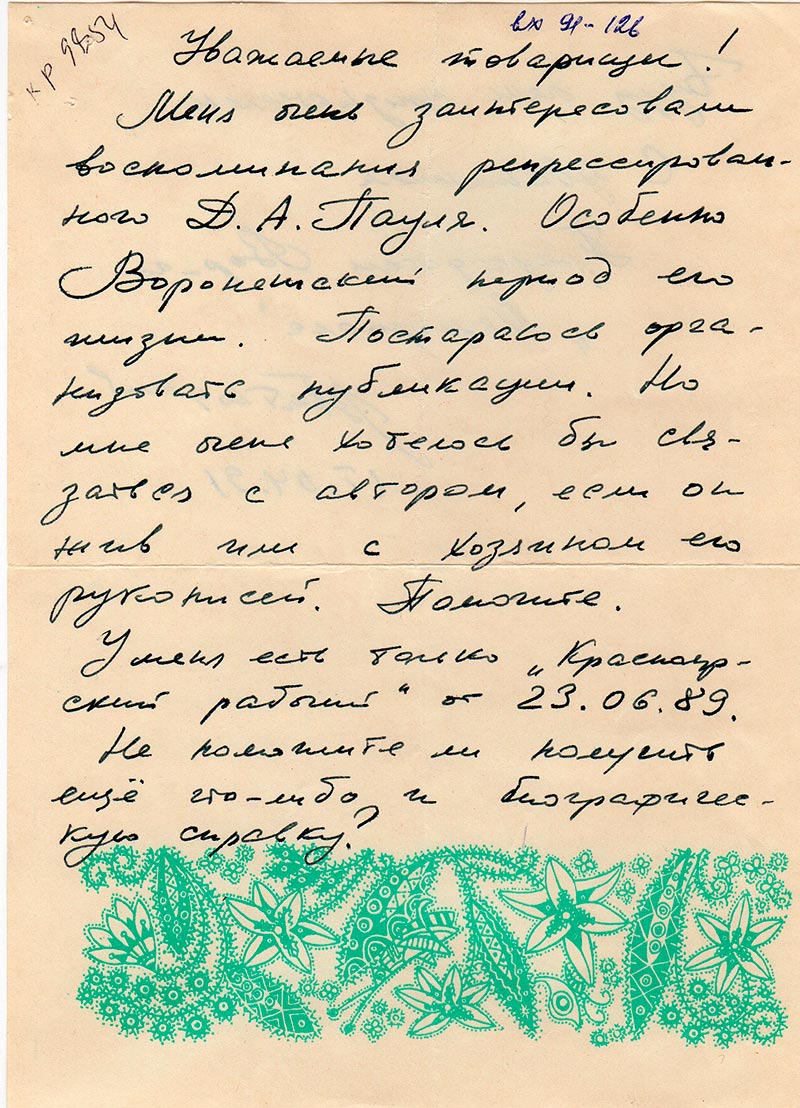 вх 91-126
КР 9854
Уважаемые товарищи!
Меня очень заинтересовали
воспоминания репрессирован-
ного Д. А. Пауля. Особенно
Воронежский период его
жизни. Постараюсь орга-
низовать публикации. Но
мне очень хотелось бы свя-
заться с автором, если он
жив или с хозяином его
рукописей. Помогите.
У меня есть только „Краснояр-
ский рабочий“ от 23.06.89.
Не поможите ли получить
ещё что-либо и биографичес-
кую справку?